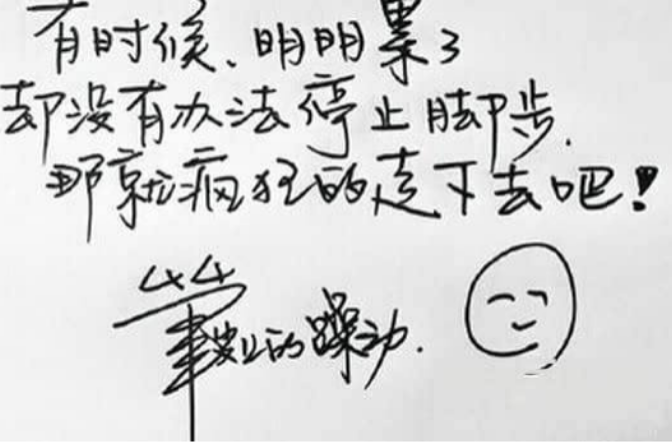 有时候、明明累了
却没有办法停止脚步.
那就疯狂的走下去吧!
筆尖上的躁动.